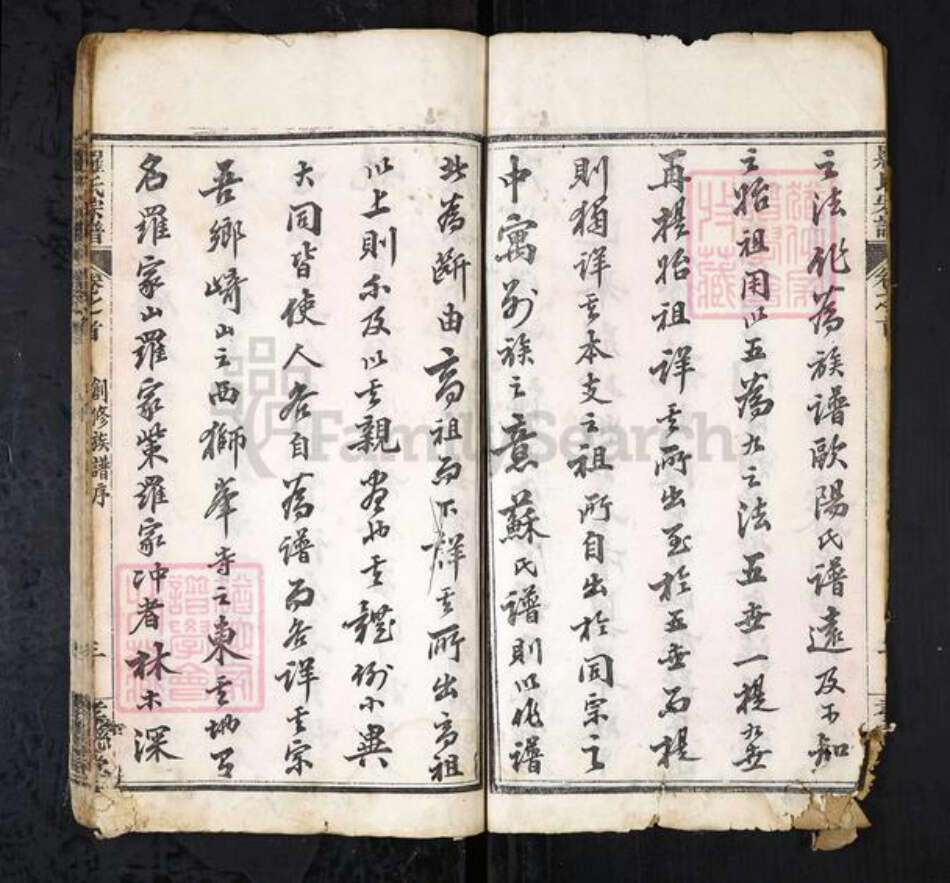 之法作為族譜歐陽氏譜遠及不知
之始祖用以五為九之法五世一提九世
再提始祖詳其所出至於五世而提
則獨詳其本支之祖所自出於同宗之
中寓別族之意蘇氏譜則以作譜
此為斷由高祖而下詳其所出高祖
以上則不及以其親盡也其體例小異
大同皆使人各自為譜而各詳其宗
吾鄉崎山之西獅峯寺之東其坳有
名羅家山羅家柴羅家冲者林木深
羅氏族譜
卷之首
創修族譜序
三
FamilySearch